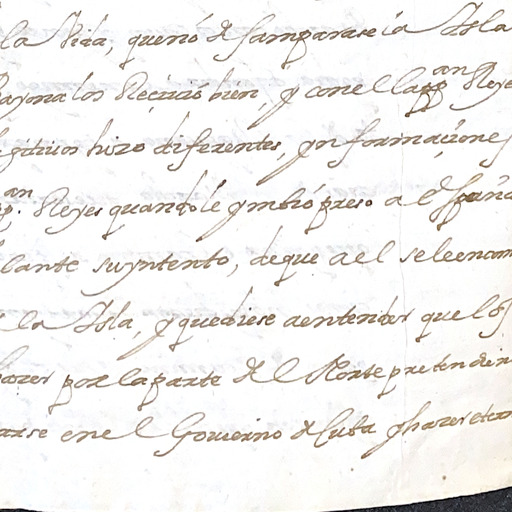 la Vida, quenó desamparase la Isla
Bayona los Recivió bien, y con el Cappan Reye
gitivos hizo diferentes, ynformaçiones
pan. Reyes quando le ymbió preso a España
lante suyntento, deque a el se leencom
la Isla, y quediese aentender que los
hazer por la parte del Norte pretender
arse enel Govierno de Cuba y hazer